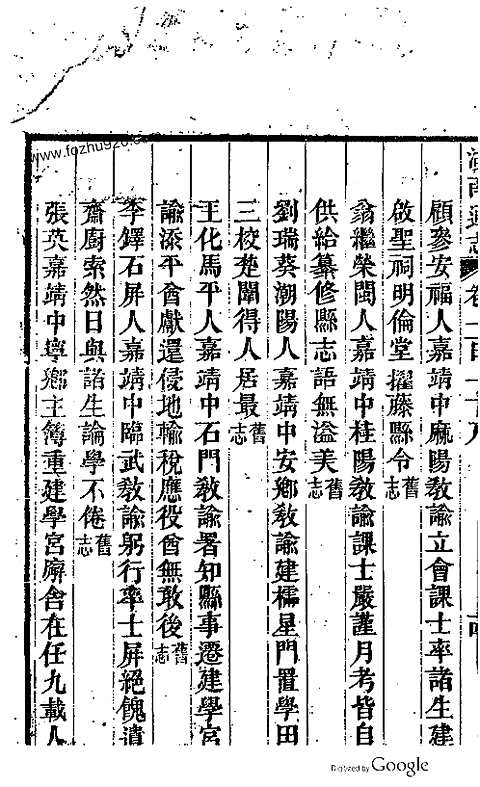 顧㕘安福人嘉靖中麻陽敎諭立會課士率諸生建
啟聖祠明倫堂擢藤縣令舊志
翁繼榮閩人嘉靖中桂陽敎諭課士嚴謹月考皆自
供給纂修縣志語無溢美舊志
劉瑞葵潮陽人嘉靖中安鄉敎諭建櫺星門置學田
三校楚闈得人居最舊志
王化馬平人嘉靖中石門敎諭署知縣事遷建學宮
諭添平酋獻還侵地輸稅應役酋無敢後舊志
李鐸石屏人嘉靖中臨武敎諭躬行率士屏絕餽遺
齋廚索然日與諸生論學不倦舊志
張英嘉靖中寧鄉主簿重建學宮廨舍在任九載人
www.fozhu920.com
Digitized by Google